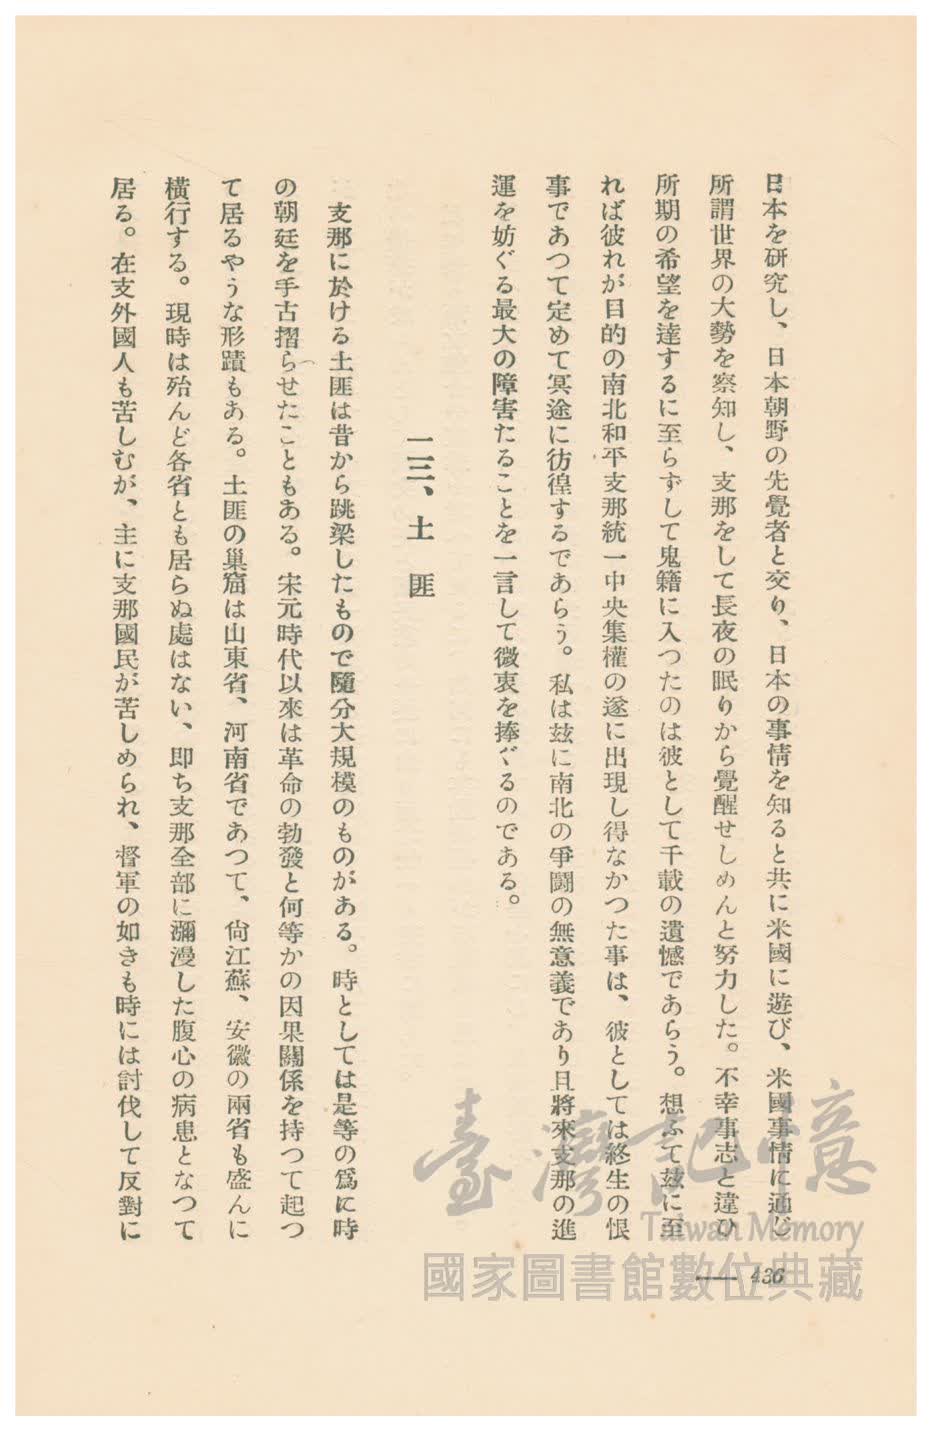 日本を研究し、日本朝野の先覺者と交り、日本の事情を知ると共に米國に遊び、米國事情に通じ
所謂世界の大勢を察知し、支那をして長夜の眠りから覺醒せしめんと努力した。不幸事志と違ひ
所期の希望を達するに至らずして鬼籍に入つたのは彼として千載の遺憾であらう。想ふて玆に至
れば彼れが目的の南北和平支那統一中央集權の遂に出現し得なかつた事は、彼としては終生の恨
事であつて定めて冥途に彷徨するであらう。私は玆に南北の爭鬪の無意義であり且將來支那の進
運を妨ぐる最大の障害たることを一言して微衷を捧ぐるのである。
一三、土　匪
支那に於ける土匪は昔から跳梁したもので隨分大規模のものがある。時としては是等の爲に時
の朝廷を手古摺らせたこともある。宋元時代以來は革命の勃發と何等かの因果關係を持つて起つ
て居るやうな形蹟もある。土匪の巢窟は山東省、河南省であつて、尙江蘇、安徽の兩省も盛んに
橫行する。現時は殆んど各省とも居らぬ處はない、卽ち支那全部に瀰漫した腹心の病患となつて
居る。在支外國人も苦しむが、主に支那國民が苦しめられ、督軍の如きも時には討伐して反對に
436
臺灣記憶
Taiwan Memory
國家圖書館數位典藏